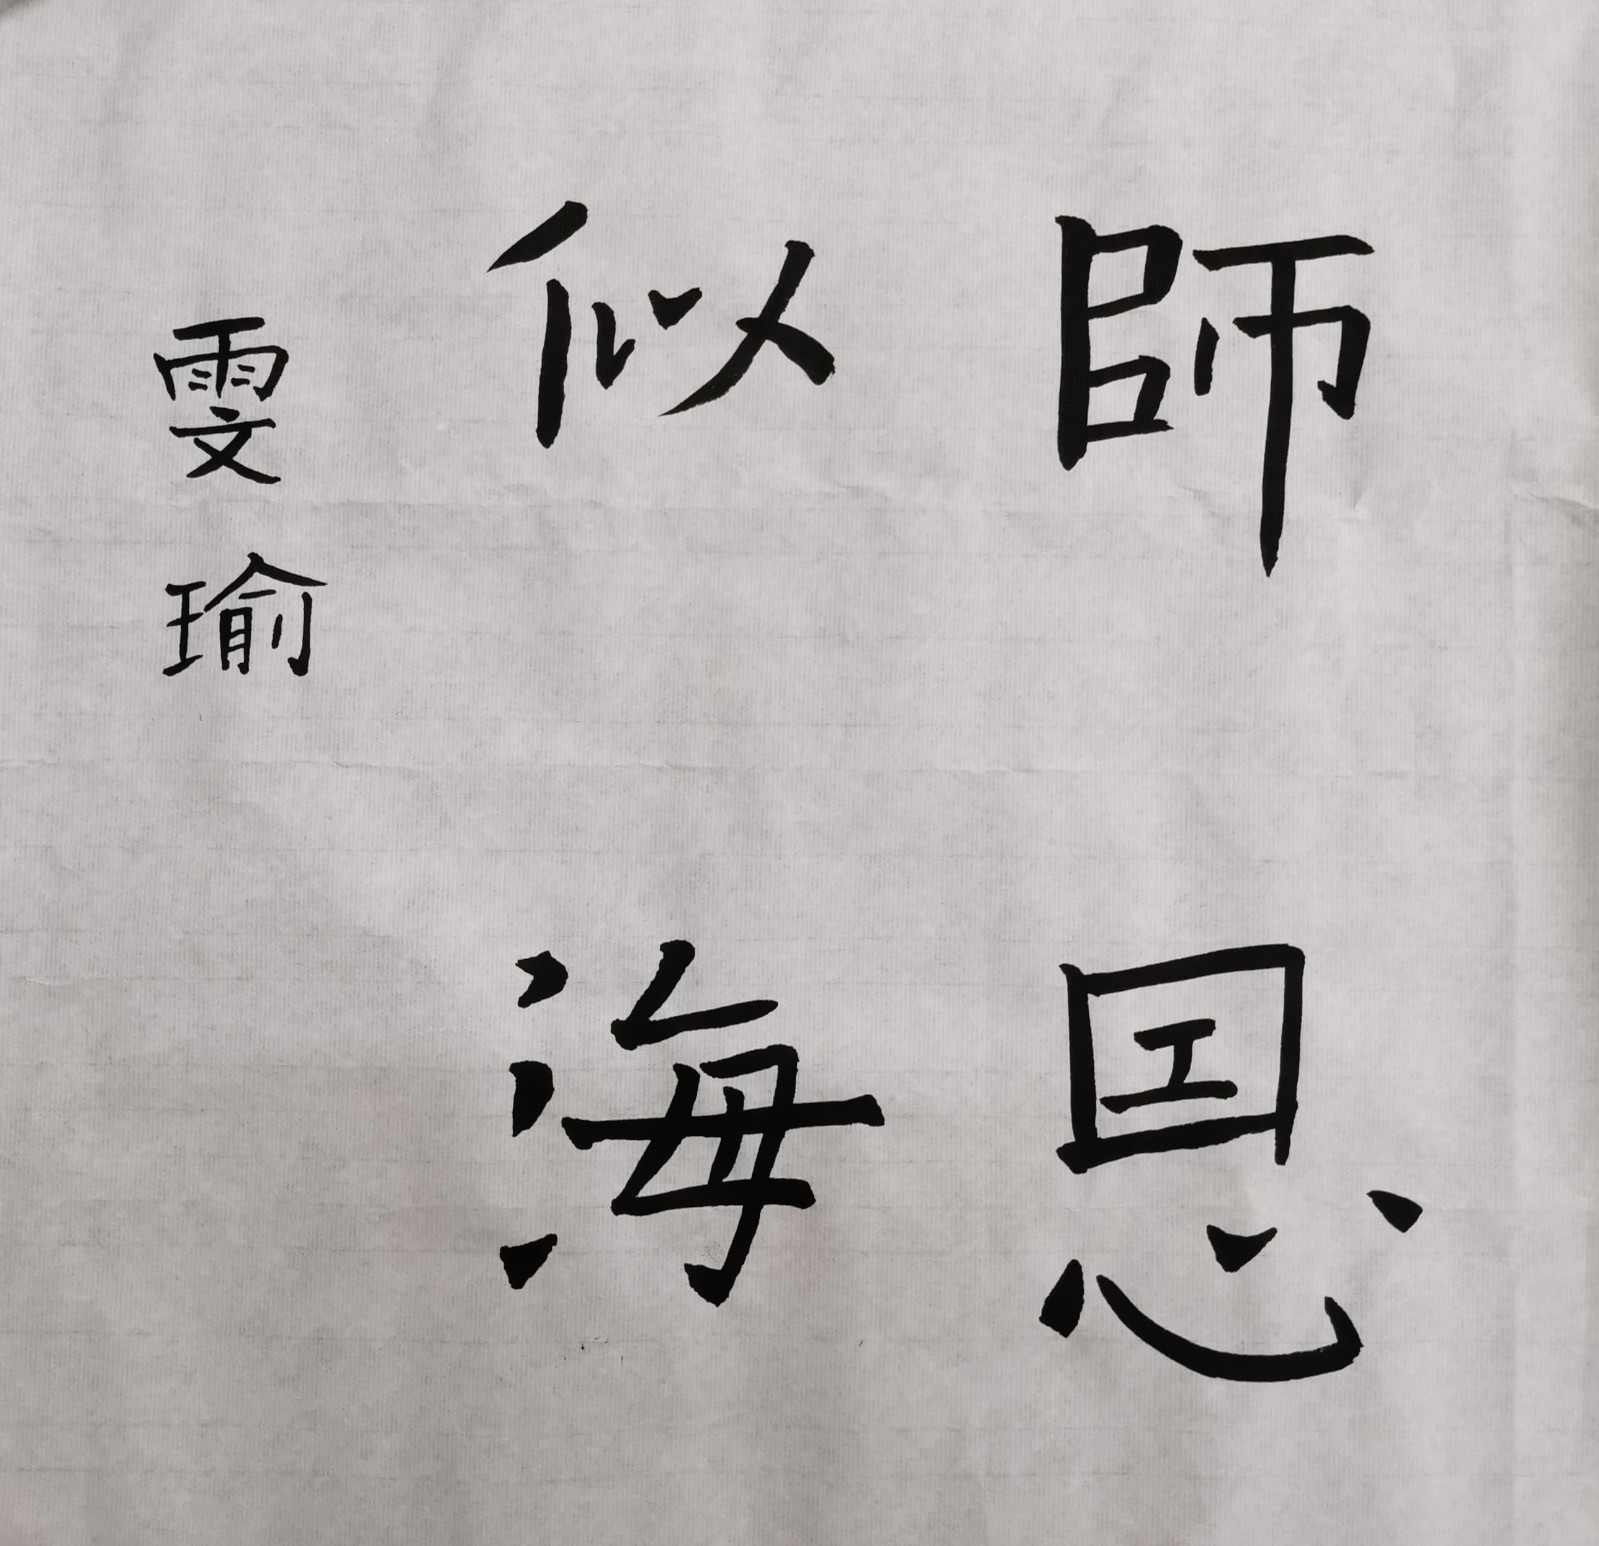 師恩
似海
雯瑜